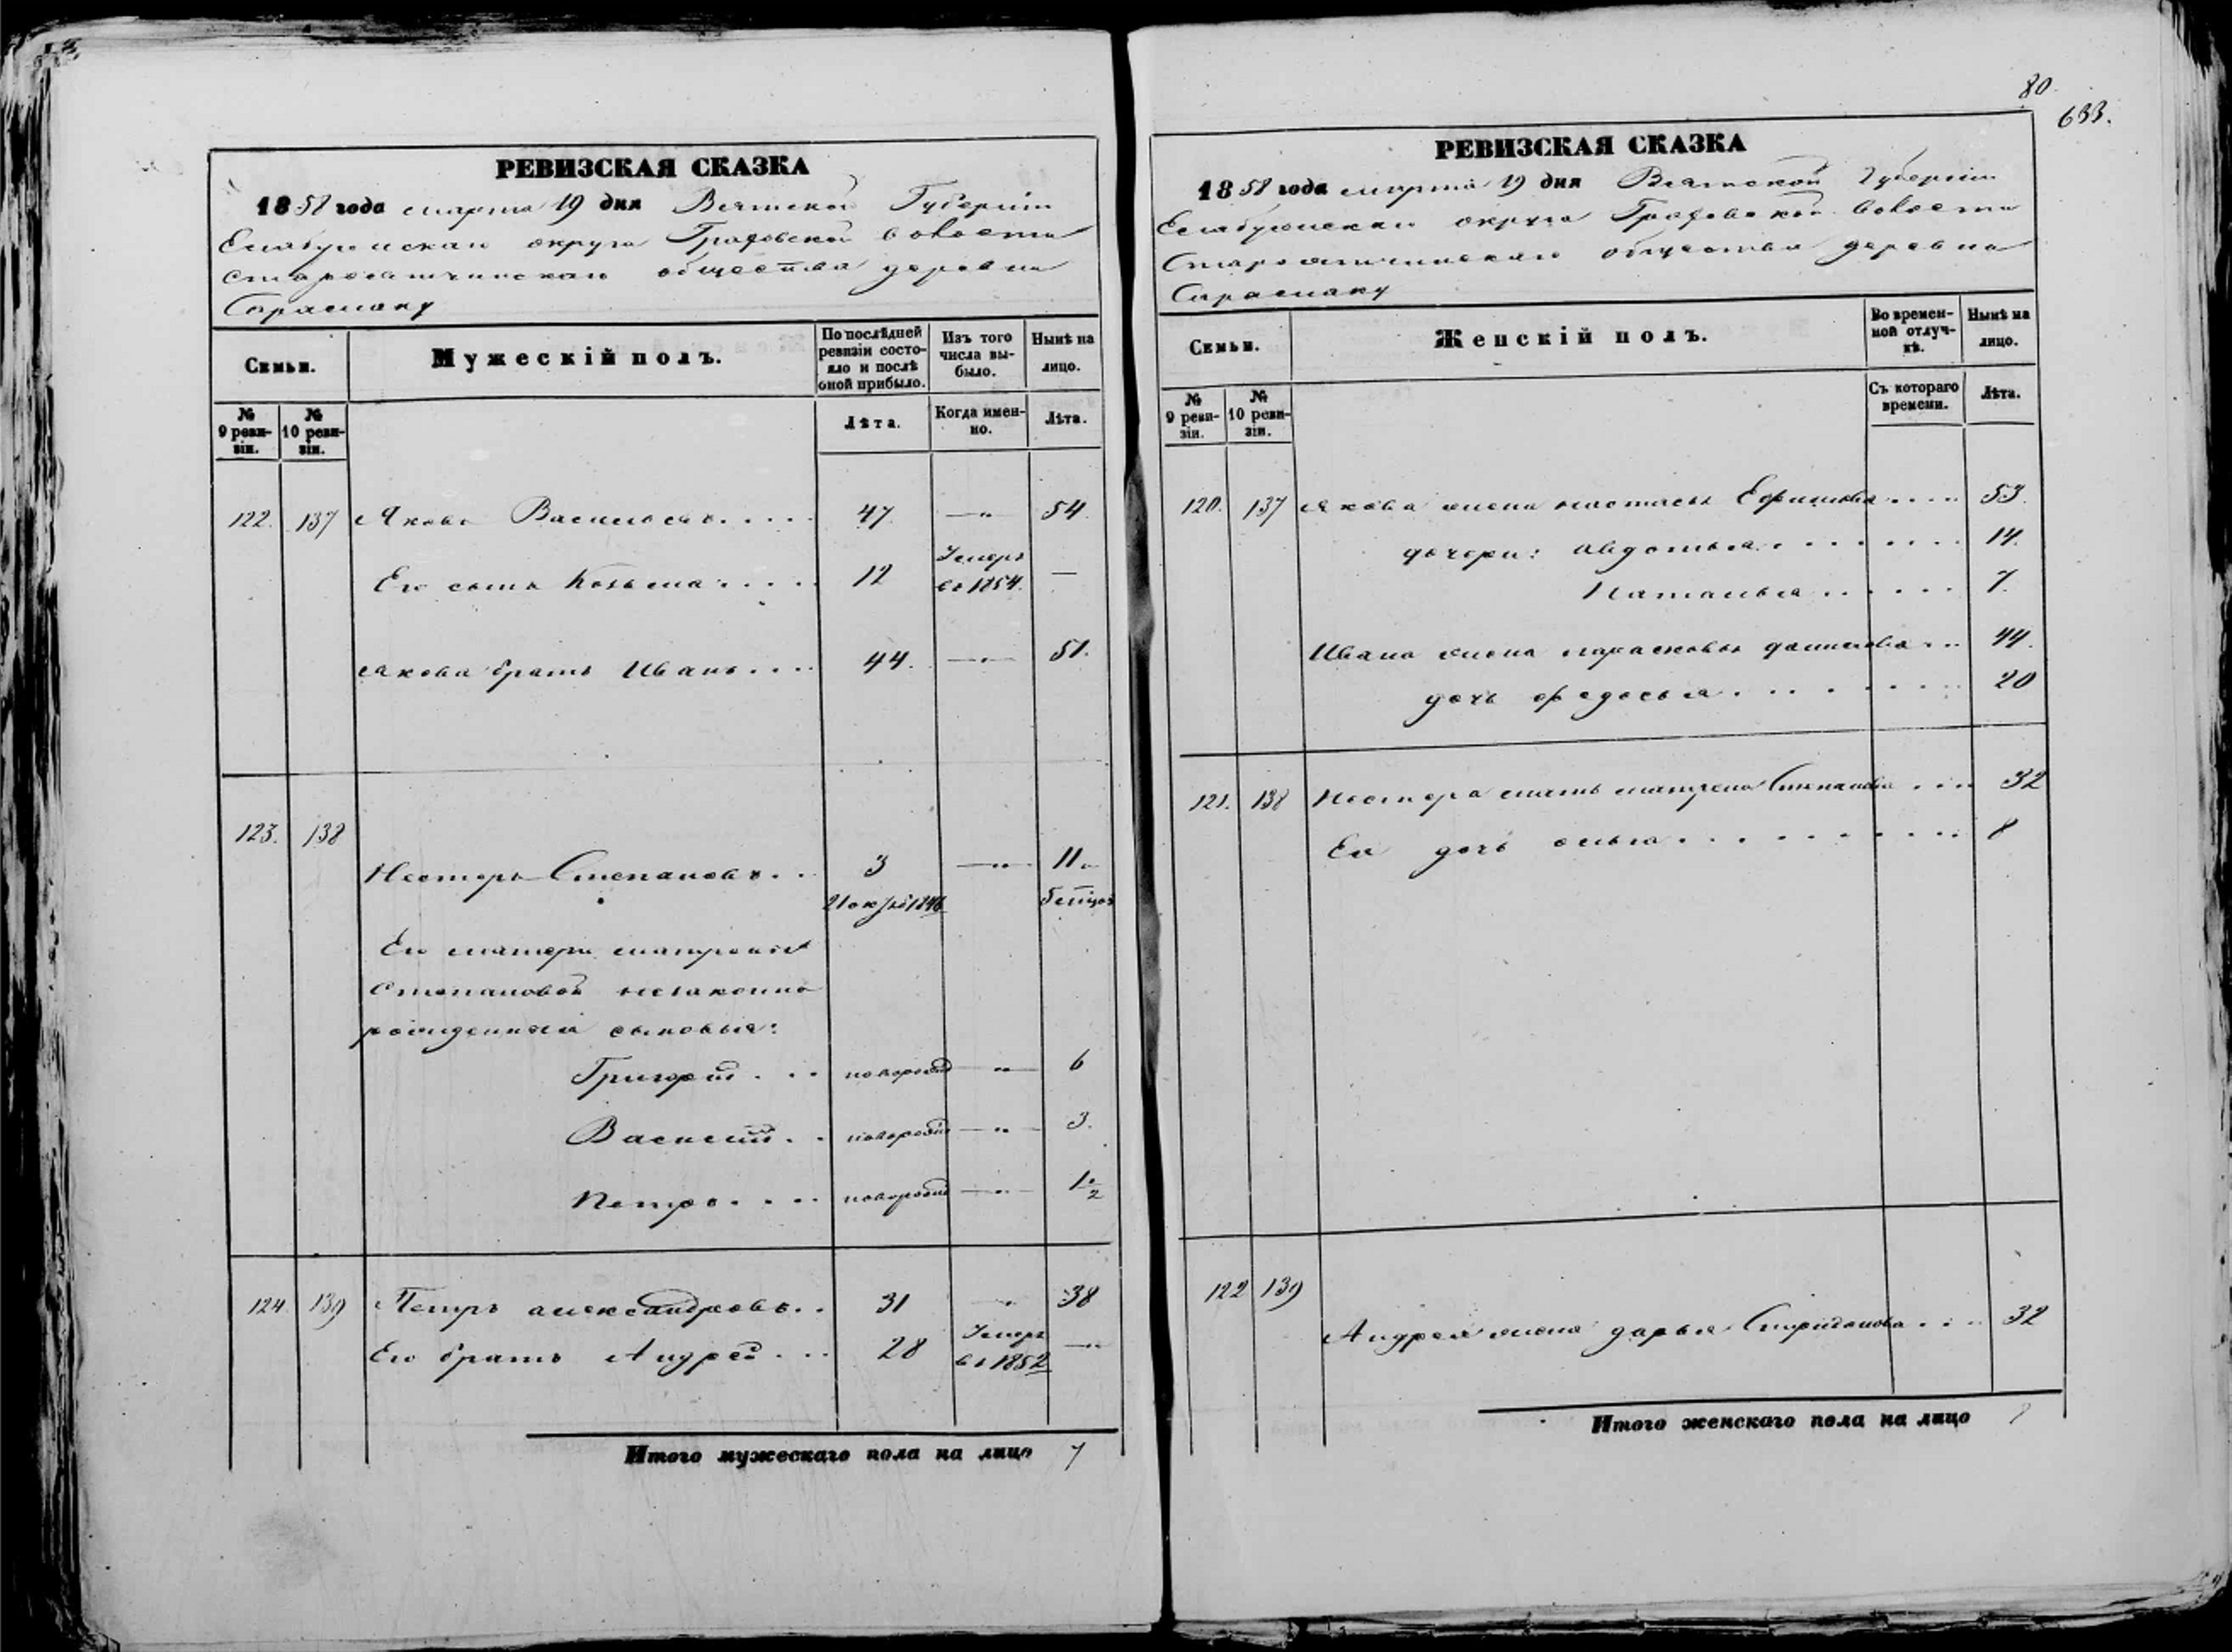 РЕВИЗСКАЯ СКАЗКА
1858 года марта 19 дня Вятской Губерніи
Елабужскаго округа Графовской волости
Староятчинскаго общества деревни
Семьи.
Мужескій полъ.
По послѣдней ревизіи состояло и послѣ оной прибыло.
Изъ того числа выбыло.
Нынѣ на лицо.
№ 9 ревизіи.
№ 10 ревизіи.
Лѣта.
Когда именно.
Лѣта.
122. 137 Яковъ Васильевъ.... 47. —„— 54.
Его сынъ Козьма.... 12 Умеръ въ 1854. —
Якова братъ Иванъ... 44. —„— 51.
123. 138
Несторъ Степановъ.. 3 —„— 11
Его матери Матрены
Степановой незаконно
рожденныя сыновья:
Григорій... новорожд —„— 6
Василій.. новорожд —„— 3.
Петръ.... новорожд —„— 1½
124. 139 Петръ Александровъ.. 31 —„— 38
Его братъ Андрей... 28 Умеръ въ 1852 —„
Итого мужескаго пола на лицо 7
80.
633.
РЕВИЗСКАЯ СКАЗКА
1858 года марта 19 дня Вятской Губерніи
Елабужскаго округа Графовской волости
Староятчинскаго общества деревни
Семьи.
Женскій полъ.
Во временной отлучкѣ.
Нынѣ на лицо.
№ 9 ревизіи.
№ 10 ревизіи.
Съ котораго времени.
Лѣта.
120. 137 Якова жена Настасья Ефимова.... 53.
дочери: Авдотья........ 14.
Наталья...... 7.
Ивана жена Парасковья Данилова... 44.
дочь Федосья......... 20
121. 138 Нестора мать Матрена Степанова.... 32
Ея дочь......... 8
122 139
Андрея жена Дарья Спиридонова.... 32
Итого женскаго пола на лицо